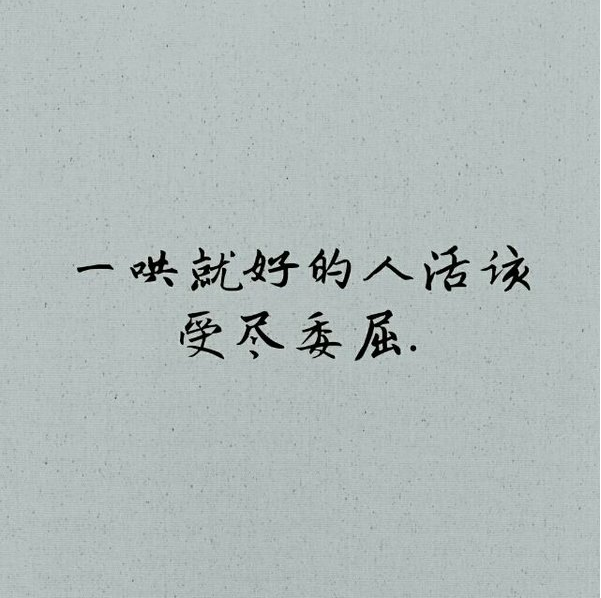 一哄就好的人活该
受尽委屈.